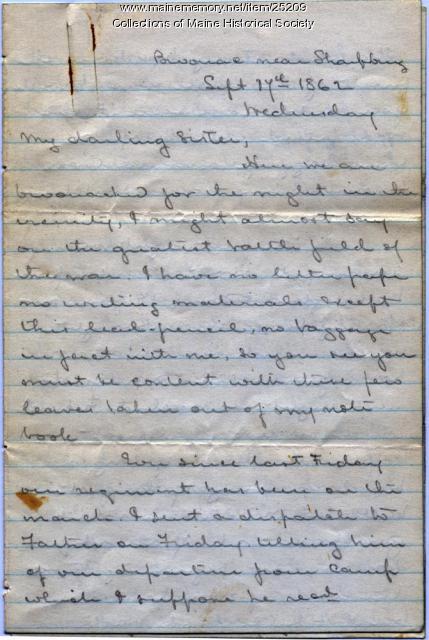 www.mainememory.net/item/25209
Collections of Maine Historical Society
Bivouac near Sharpburg
Sept 17th 1862
Wednesday
My darling Sister,
Here we are
bivouacked for the night in the
vicinity, I might almost say
on the greatest battle field of
the war. I have no letter paper
no writing materials except
this lead-pencil, no baggage
in fact with me, so you see you
must be content with these few
leaves taken out of my note
book
Ever since last Friday
our regiment has been on the
march. I sent a dispatch to
Father on Friday telling him
of our departure from camp
which I suppose he recd